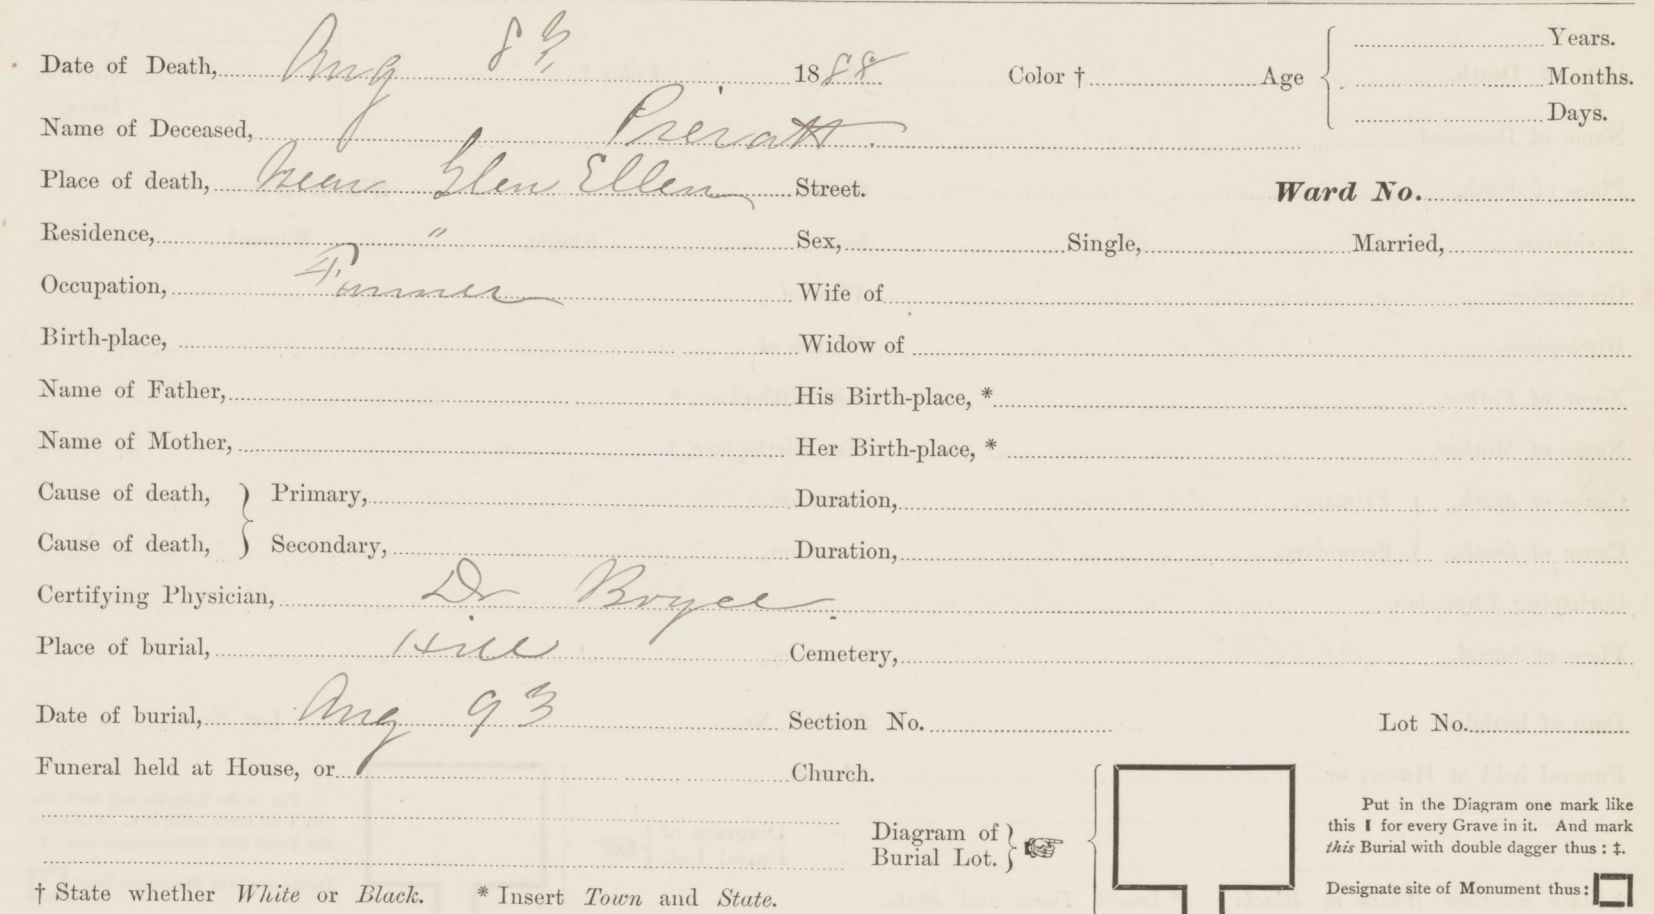 Date of Death, Aug 8th, 1888 Color † Age Years.
Months.
Days.
Name of Deceased, Prevatt.
Place of death, Near Glen Ellen Street. Ward No.
Residence, " Sex, Single, Married,
Occupation, Farmer Wife of
Birth-place, Widow of
Name of Father, His Birth-place, *
Name of Mother, Her Birth-place, *
Cause of death, } Primary, Duration,
Cause of death, } Secondary, Duration,
Certifying Physician, Dr Boyce.
Place of burial, Hill Cemetery,
Date of burial, Aug 9 Section No. Lot No.
Funeral held at House, or Church.
Diagram of
Burial Lot. }
Put in the Diagram one mark like
this I for every Grave in it. And mark
this Burial with double dagger thus: ‡.
Designate site of Monument thus:
† State whether White or Black. * Insert Town and State.